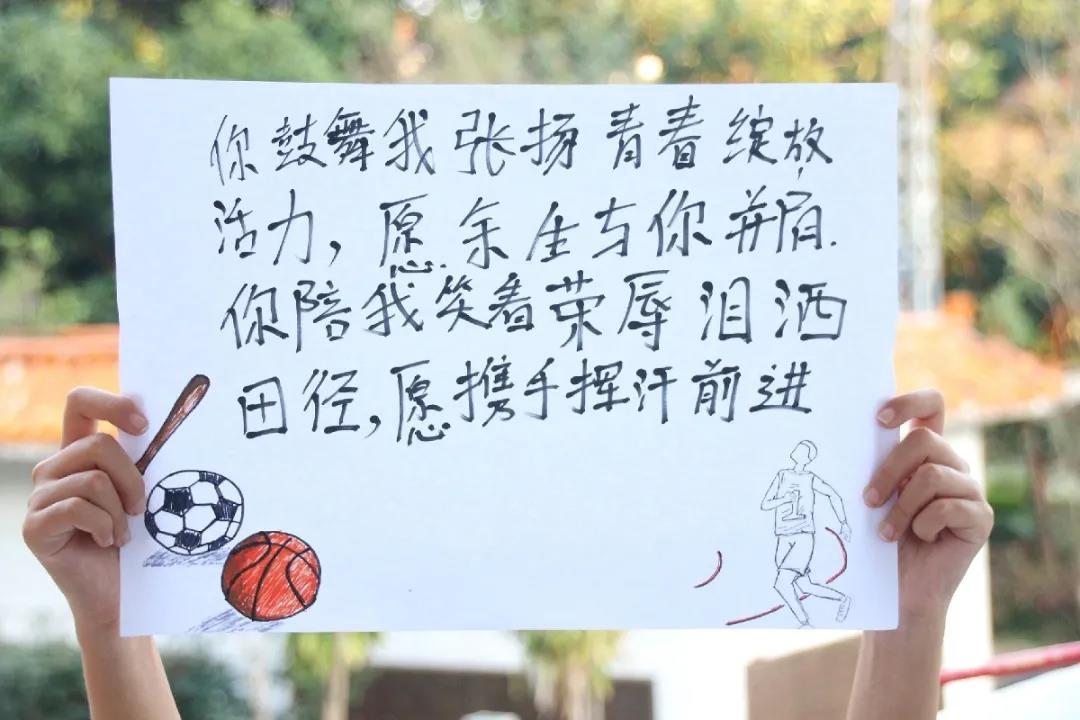 你鼓舞我张扬青春绽放
活力，愿余生与你并肩.
你陪我笑看荣辱泪洒
田径，愿携手挥汗前进
1